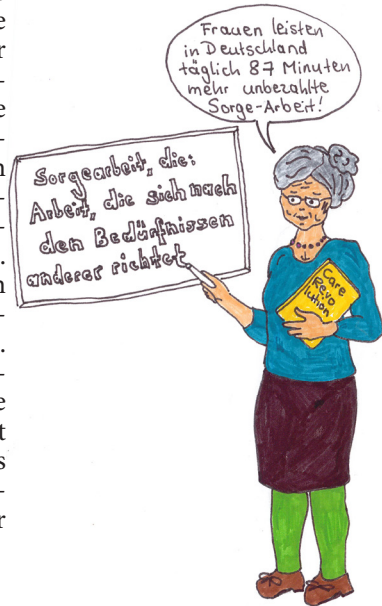 Frauen leisten
in Deutschland
täglich 87 Minuten
mehr unbezahlte
Sorge-Arbeit!
Sorgearbeit, die:
Arbeit, die sich nach
den Bedürfnissen
anderer richtet
Care
Revo
lution